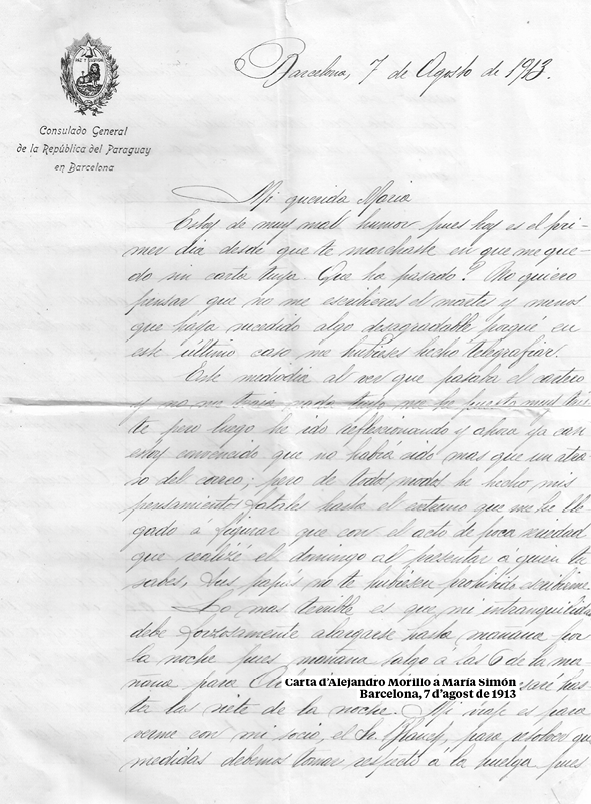 PAZ Y JUSTICIA
Consulado General
de la República del Paraguay
en Barcelona
Barcelona, 7 de Agosto de 1913.
Mi querida Maria
Estoy de muy mal humor pues hoy es el pri-
mer dia desde que te marchaste en que me que-
do sin carta tuya. Que ha pasado? No quiero
pensar que no me escribieras el martes y menos
que haya sucedido algo desagradable porqué en
este último caso me hubieses hecho telegrafiar.
Este mediodia al ver que pasaba el cartero
y no me traia nada tuyo me he puesto muy tris-
te pero luego he ido reflessionando y ahora ya casi
estoy convencido que no habrá sido mas que un atra-
so del correo; pero de todos modos he hecho mis
pensamientos fatales hasta el extremo que me he lle-
gado á figurar que con el acto de poca seriedad
que realizé el domingo al presentar á quien tu
sabes, tus papas no te hubiesen prohibido escribirme.
Lo mas terrible es que mi intranquilidad
debe forzosamente alargarse hasta mañana por
la noche pues mañana salgo á las 6 de la ma-
ñana para
Carta d'Alejandro Morillo a María Simón
Barcelona, 7 d'agost de 1913
ta las siete de la noche. Mi viaje es para
verme con mi socio, el Sr. para resolver que
medidas debemos tomar respecto á la huelga pues